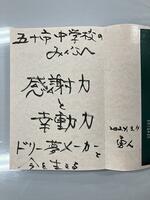 五十市中学校の
みなさんへ
感謝力
と
幸動力
ドリー夢メーカーと
今を生きる
2024.3.9